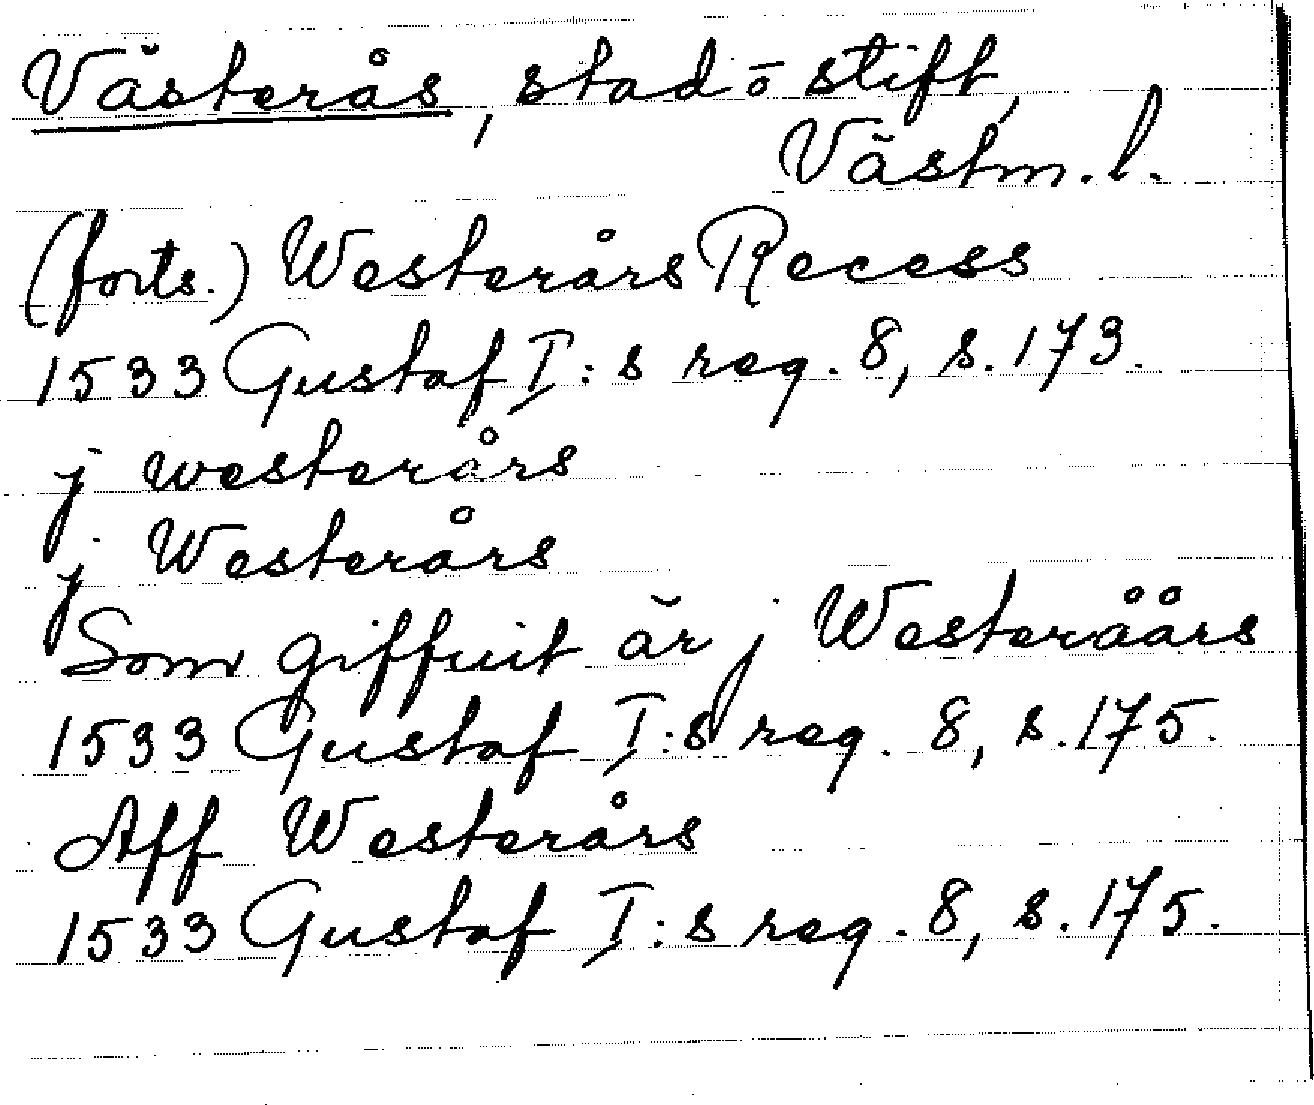 Västerås, stad o stift,
Västm. l.
(forts.) Westerårs Recess
1533 Gustaf I:s reg. 8, s. 173.
j westerårs
j Westerårs
Som giffuit är j Westeråårs
1533 Gustaf I:s reg. 8, s. 175.
Aff Westerårs
1533 Gustaf I:s reg. 8, s. 175.